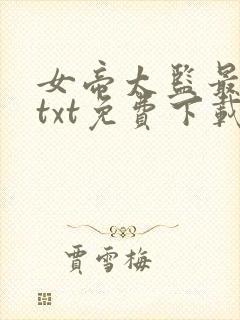 女帝大監最
txt免費下載
賈雪梅